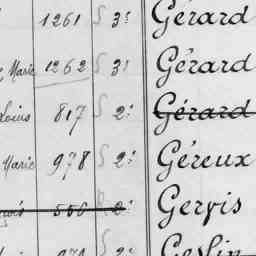 1261 S 3ᵉ Gérard
Marie 1262 S 3ᵉ Gérard
Louis 817 S 2ᵉ Gérard
Marie 978 S 2ᵉ Géreux
556 2ᵉ Gervis
2ᵉ Geslin